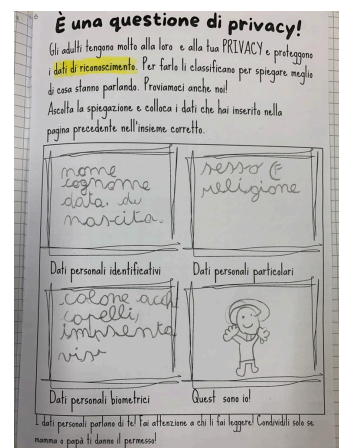 6
È una questione di privacy!
Gli adulti tengono molto alla loro e alla tua PRIVACY e proteggono
i dati di riconoscimento. Per farlo li classificano per spiegare meglio
di cosa stanno parlando. Proviamoci anche noi!
Ascolta la spiegazione e colloca i dati che hai inserito nella
pagina precedente nell'insieme corretto.
nome
cognome
data di
nascita.
sesso e
religione
Dati personali identificativi
Dati personali particolari
colore occh
capelli,
impronta
vis
Dati personali biometrici
Quest sono io!
I dati personali parlano di te! Fai attenzione a chi li fai leggere! Condividili solo se
mamma o papà ti danno il permesso!